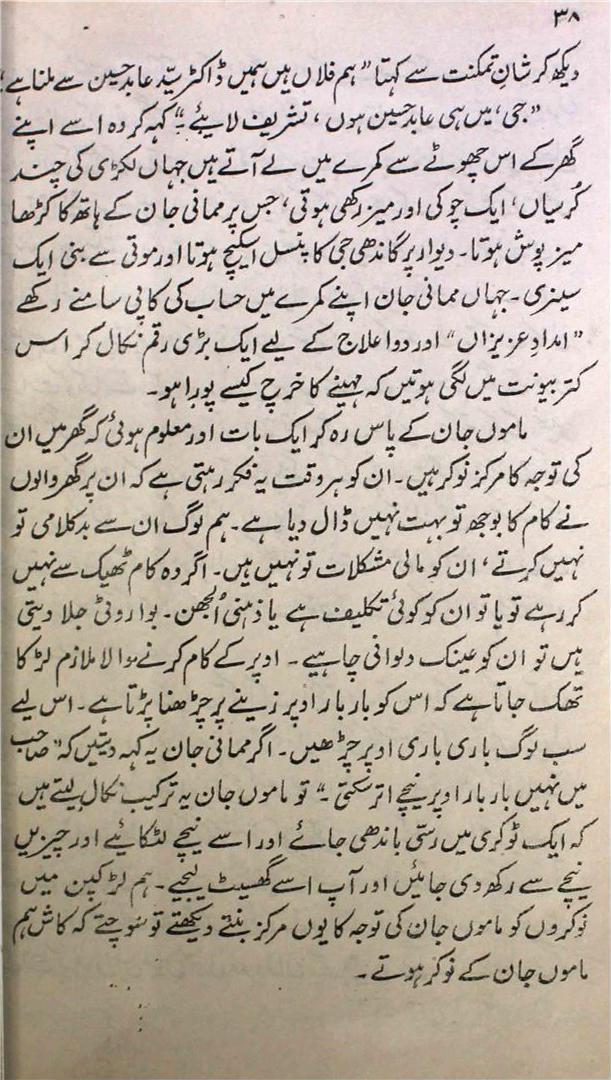 ۳۸
دیکھ کر شانِ تمکنت سے کہتا "ہم فلاں ہیں ہمیں ڈاکٹر سیّد عابد حسین سے ملنا ہے"
"جی، میں ہی عابد حسین ہوں، تشریف لایئے۔" کہہ کر وہ اسے اپنے
گھر کے اس چھوٹے سے کمرے میں لے آتے ہیں جہاں لکڑی کی چند
کُرسیاں، ایک چوکی اور میز رکھی ہوتی، جس پر ممانی جان کے ہاتھ کا کڑھا
میز پوش ہوتا۔ دیوار پر گاندھی جی کا پنسل اسکیچ ہوتا اور موتی سے بنی ایک
سینری۔ جہاں ممانی جان اپنے کمرے میں حساب کی کاپی سامنے رکھے
"امدادِ عزیزاں" اور دوا علاج کے لیے ایک بڑی رقم نکال کر اس
کتر بیونت میں لگی ہوتیں کہ مہینے کا خرچ کیسے پورا ہو۔
ماموں جان کے پاس رہ کر ایک بات اور معلوم ہوئی کہ گھر میں ان
کی توجہ کا مرکز نوکر ہیں۔ ان کو ہر وقت یہ فکر رہتی ہے کہ ان پر گھر والوں
نے کام کا بوجھ تو بہت نہیں ڈال دیا ہے۔ ہم لوگ ان سے بدکلامی تو
نہیں کرتے، ان کو مالی مشکلات تو نہیں ہیں۔ اگر وہ کام ٹھیک سے نہیں
کر رہے تو یا تو ان کو کوئی تکلیف ہے یا ذہنی اُلجھن۔ بوا روٹی جلا دیتی
ہیں تو ان کو عینک دلوانی چاہیے۔ اوپر کے کام کرنے والا ملازم لڑکا
تھک جاتا ہے کہ اس کو بار بار اوپر زینے پر چڑھنا پڑتا ہے۔ اس لیے
سب لوگ باری باری اوپر چڑھیں۔ اگر ممانی جان یہ کہہ دیتیں کہ "صاحب
میں نہیں بار بار اوپر نیچے اتر سکتی۔" تو ماموں جان یہ ترکیب نکال لیتے ہیں
کہ ایک ٹوکری میں رسّی باندھی جائے اور اسے نیچے لٹکایئے اور چیزیں
نیچے سے رکھ دی جائیں اور آپ اسے گھسیٹ لیجیے۔ ہم لڑکپن میں
نوکروں کو ماموں جان کی توجہ کا یوں مرکز بنتے دیکھتے تو سوچتے کہ کاش ہم
ماموں جان کے نوکر ہوتے۔